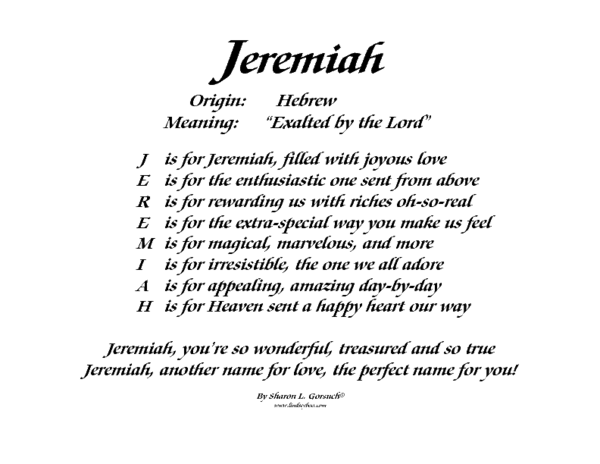 Jeremiah
Origin: Hebrew
Meaning: "Exalted by the Lord"
J is for Jeremiah, filled with joyous love
E is for the enthusiastic one sent from above
R is for rewarding us with riches oh-so-real
E is for the extra-special way you make us feel
M is for magical, marvelous, and more
I is for irresistible, the one we all adore
A is for appealing, amazing day-by-day
H is for Heaven sent a happy heart our way
Jeremiah, you're so wonderful, treasured and so true
Jeremiah, another name for love, the perfect name for you!
By Sharon L. Gorsuch©